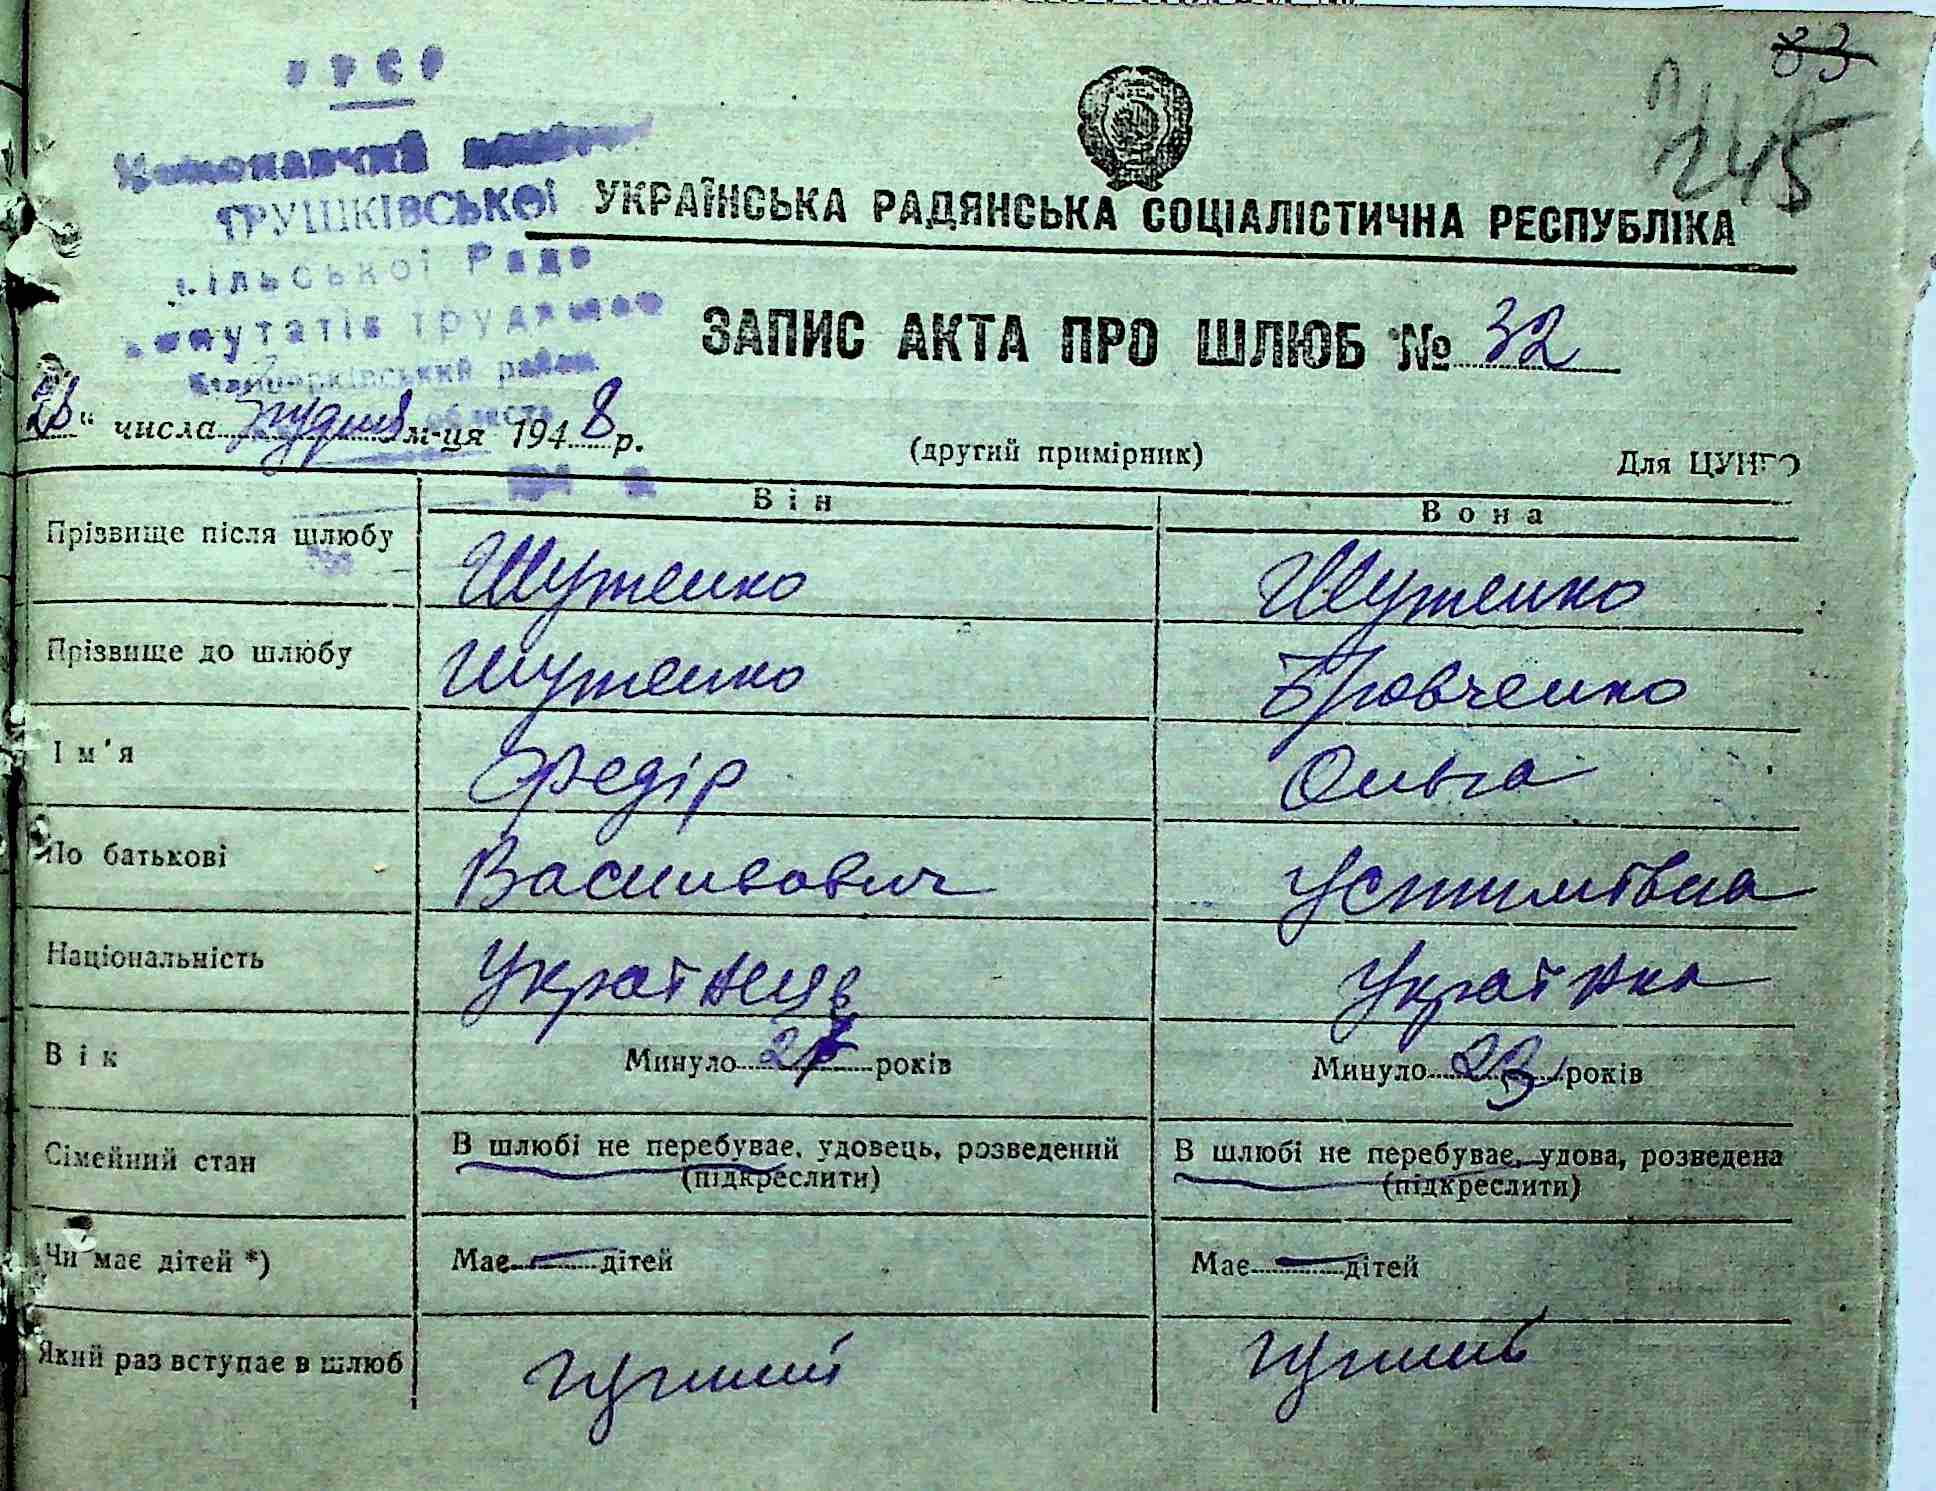 УРСР
83
245
Виконавчий комітет
ТРУШКІВСЬКОЇ
УКРАЇНСЬКА РАДЯНСЬКА СОЦІАЛІСТИЧНА РЕСПУБЛІКА
сільської Ради
депутатів трудящих
ЗАПИС АКТА ПРО ШЛЮБ № 32
район
числа грудня м-ця 1948 р.
(другий примірник)
Для ЦУНГО
Він Вона
Прізвище після шлюбу Шутенко Шутенко
Прізвище до шлюбу Шутенко Бровченко
Ім'я Федір Ольга
По батькові Васильович Устимівна
Національність Українець Українка
Вік Минуло років Минуло 23 років
Сімейний стан В шлюбі не перебуває, удовець, розведений В шлюбі не перебуває, удова, розведена
(підкреслити) (підкреслити)
Чи має дітей *) Має — дітей Має — дітей
Який раз вступає в шлюб